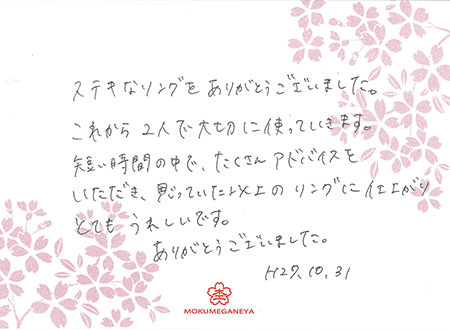 ステキなリングをありがとうございました。
これから2人で大切に使っていきます。
短い時間の中で、たくさんアドバイスを
いただき、思っていた以上のリングに仕上がり
とてもうれしいです。
ありがとうございました。
H27.10.31
MOKUMEGANEYA